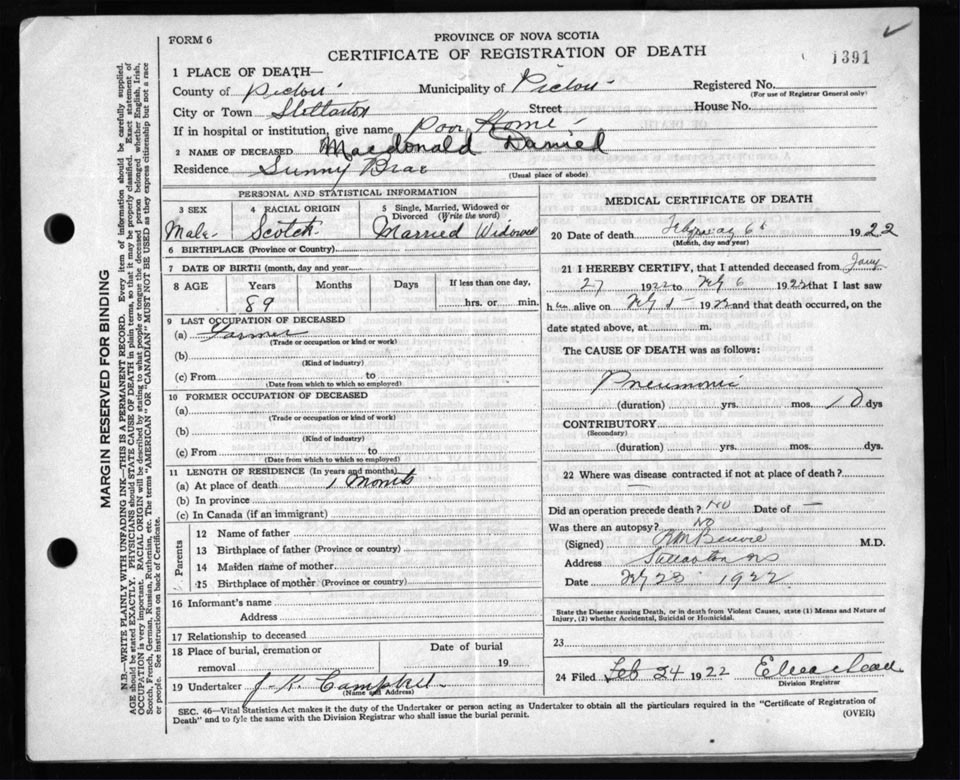 FORM 6
PROVINCE OF NOVA SCOTIA
CERTIFICATE OF REGISTRATION OF DEATH
1391
1 PLACE OF DEATH—
County of Pictou Municipality of Pictou Registered No.
(For use of Registrar General only)
City or Town Stellarton Street House No.
If in hospital or institution, give name Poor Home
2 NAME OF DECEASED Macdonald Daniel
Residence Sunny Brae
(Usual place of abode)
PERSONAL AND STATISTICAL INFORMATION
3 SEX
Male
4 RACIAL ORIGIN
Scotch
5 Single, Married, Widowed or Divorced (Write the word)
Married Widowed
6 BIRTHPLACE (Province or Country)
7 DATE OF BIRTH (month, day and year)
8 AGE Years Months Days If less than one day,
89 hrs. or min.
9 LAST OCCUPATION OF DECEASED
(a) Farmer
(Trade or occupation or kind or work)
(b)
(Kind of industry)
(c) From to
(Date from which to which so employed)
10 FORMER OCCUPATION OF DECEASED
(a)
(Trade or occupation or kind of work)
(b)
(Kind of industry)
(c) From to
(Date from which to which so employed)
11 LENGTH OF RESIDENCE (In years and months)
(a) At place of death 1 Month
(b) In province
(c) In Canada (if an immigrant)
Parents
12 Name of father
13 Birthplace of father (Province or country)
14 Maiden name of mother
15 Birthplace of mother (Province or country)
16 Informant's name
Address
17 Relationship to deceased
18 Place of burial, cremation or removal
Date of burial
19
19 Undertaker J. K. Campbell
(Name and Address)
MEDICAL CERTIFICATE OF DEATH
20 Date of death February 6 1922
(Month, day and year)
21 I HEREBY CERTIFY, that I attended deceased from Jany
27 1922 to Feby 6 1922 that I last saw
him alive on Feby 5 1922 and that death occurred, on
date stated above, at m.
The CAUSE OF DEATH was as follows:
Pneumonia
(duration) yrs. mos. 10 dys
CONTRIBUTORY
(Secondary)
(duration) yrs. mos. dys.
22 Where was disease contracted if not at place of death?
Did an operation precede death? No Date of —
Was there an autopsy? No
(Signed) M.D.
Address Stellarton NS
Date Feby 23 1922
State the Disease causing Death, or in death from Violent Causes, state (1) Means and Nature of Injury, (2) whether Accidental, Suicidal or Homicidal.
23
24 Filed Feb 24 1922
Division Registrar
SEC. 46—Vital Statistics Act makes it the duty of the Undertaker or person acting as Undertaker to obtain all the particulars required in the "Certificate of Registration of
Death" and to fyle the same with the Division Registrar who shall issue the burial permit.
(OVER)
MARGIN RESERVED FOR BINDING
N.B.—WRITE PLAINLY WITH UNFADING INK—THIS IS A PERMANENT RECORD. Every item of information should be carefully supplied.
AGE should be stated EXACTLY. PHYSICIANS should STATE CAUSE OF DEATH in plain terms, so that it may be properly classified. Exact statement of
OCCUPATION is very important. RACIAL ORIGIN will be described by stating to what people or tongue the deceased person belonged whether English, Irish,
Scotch, French, German, Russian, Ruthenian, etc. The terms "AMERICAN" or "CANADIAN" MUST NOT BE USED as they express citizenship but not a race
or people. See instructions on back of Certificate.